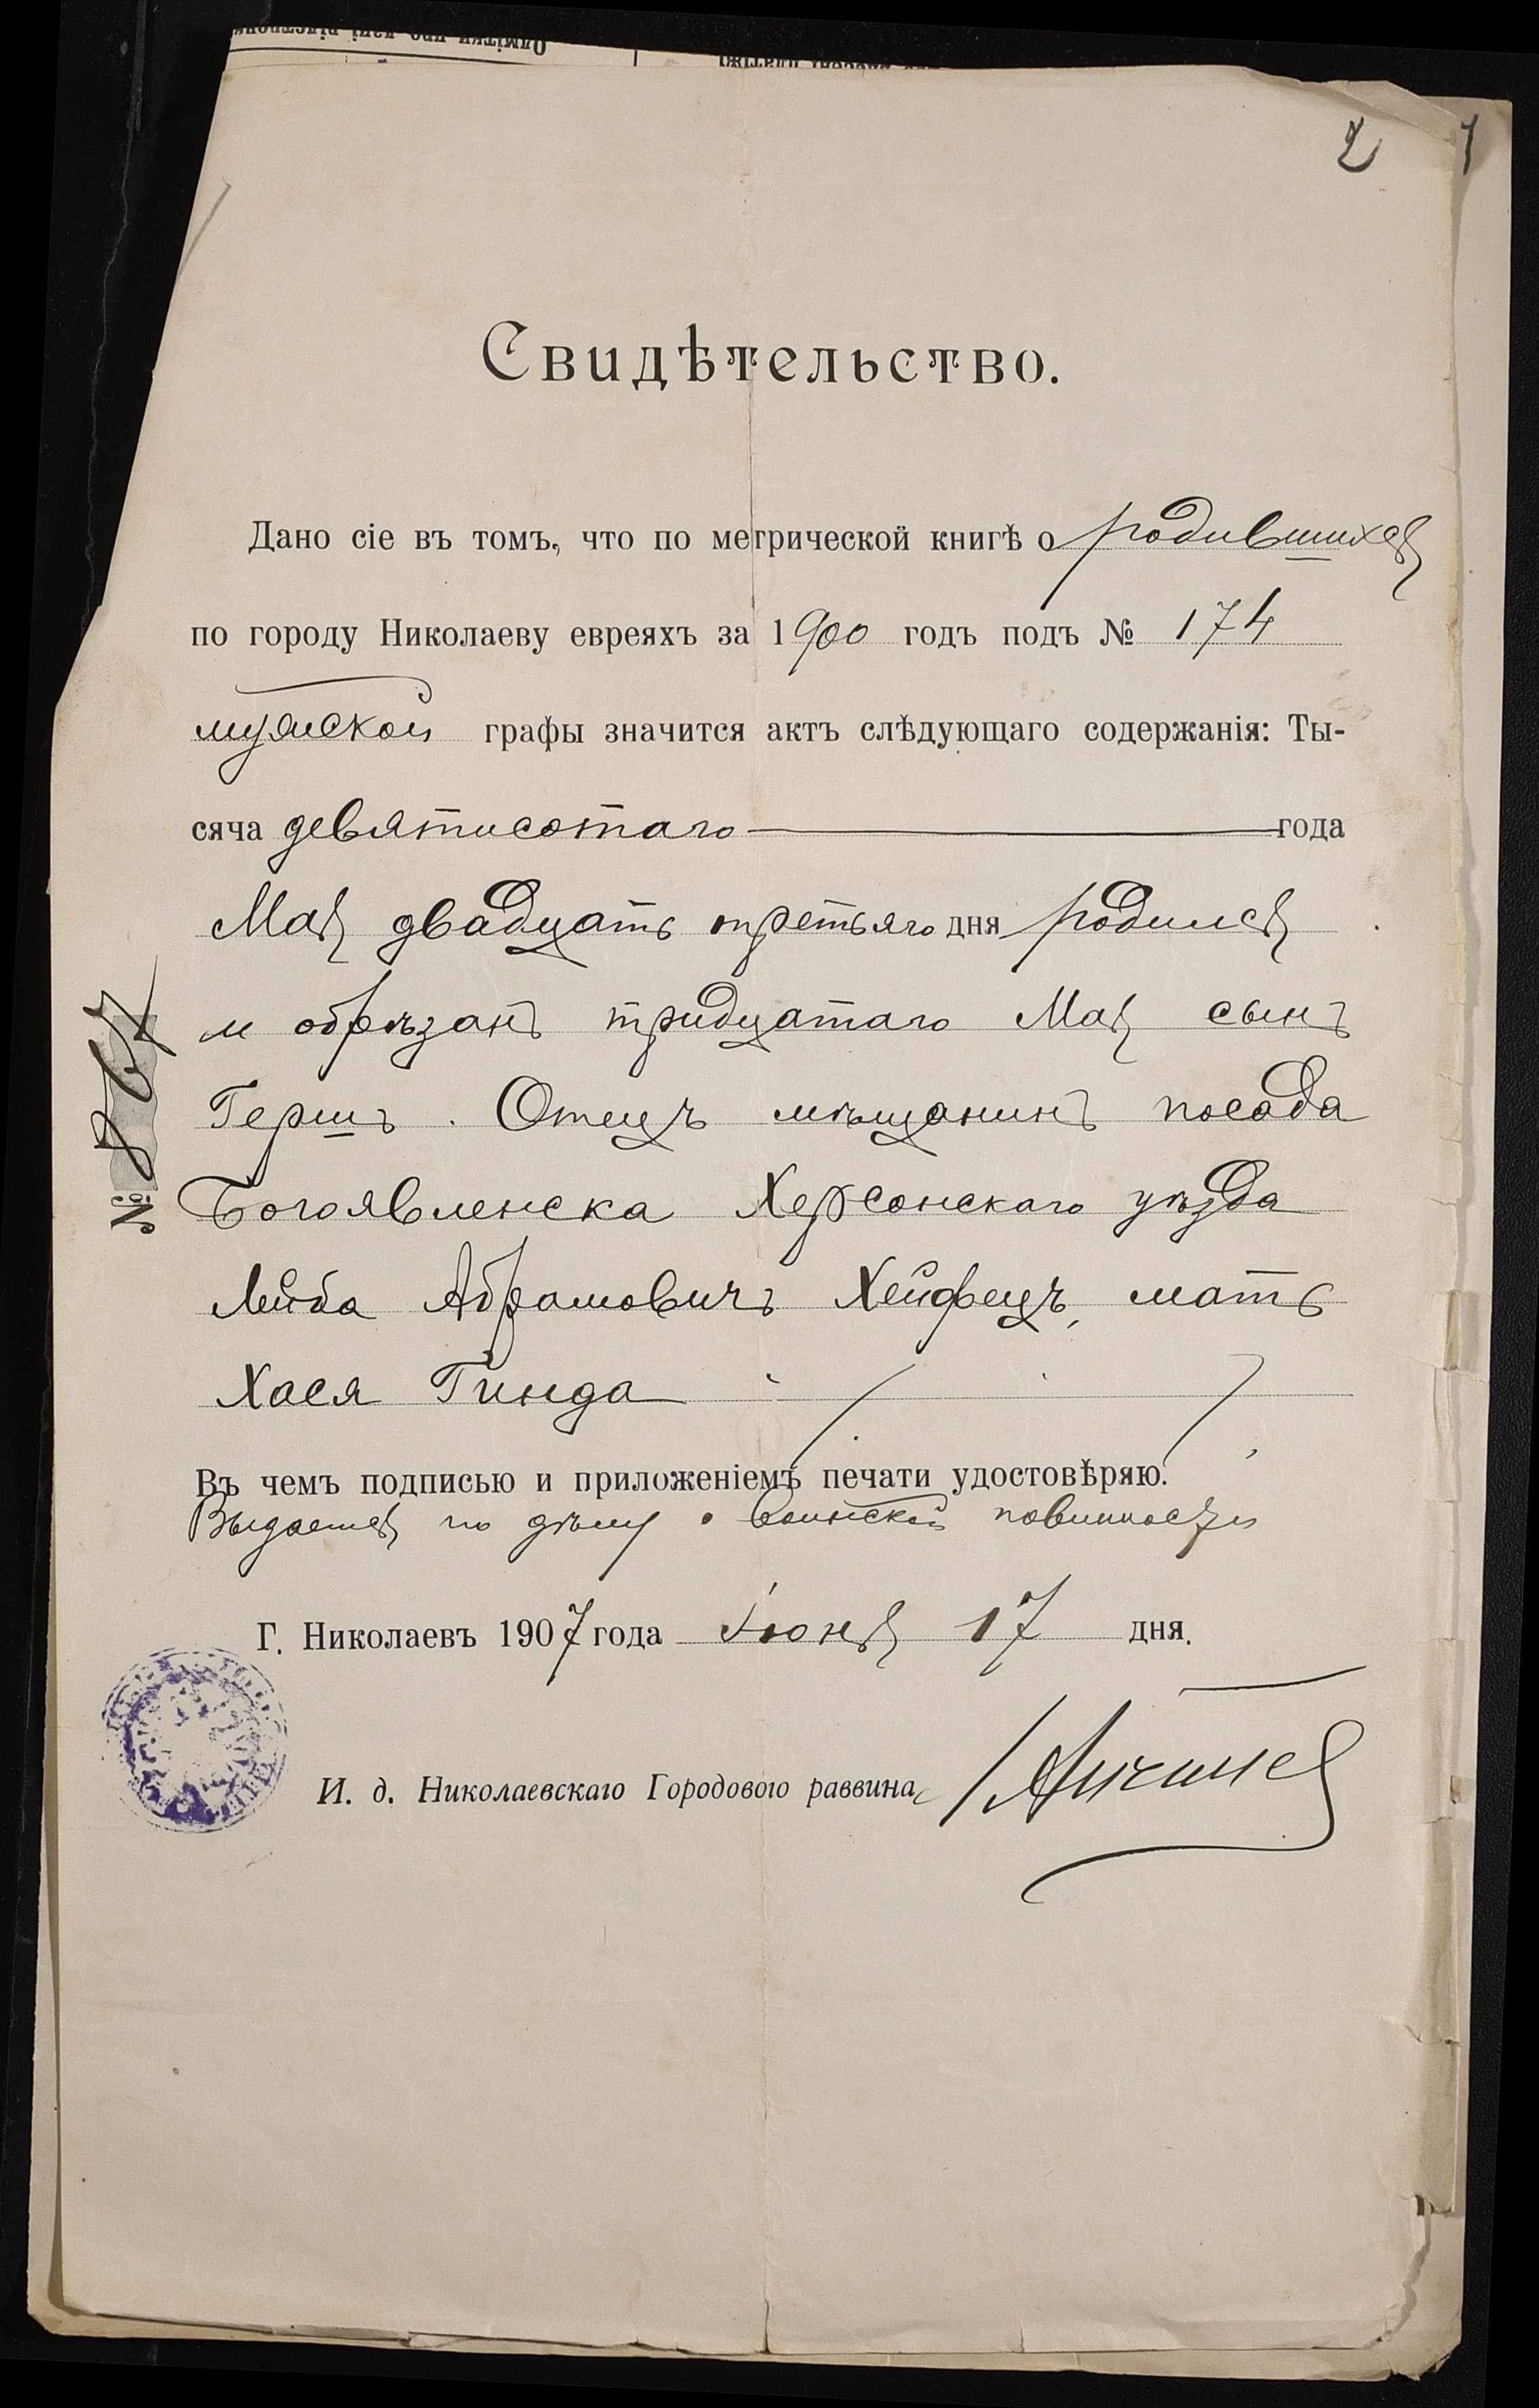 2 1
Свидѣтельство.
Дано сіе въ томъ, что по метрической книгѣ о родившихся
по городу Николаеву евреяхъ за 1900 годъ подъ № 174
мужской графы значится актъ слѣдующаго содержанія: Ты-
сяча девятисотаго года
Мая двадцать третьяго дня родился
и обрѣзанъ тридцатаго Мая сынъ
Гершъ. Отецъ мѣщанинъ посада
Богоявленска Херсонскаго уѣзда
Лейба Абрамовичъ Хейфецъ, мать
Хася Гинда
Въ чемъ подписью и приложеніемъ печати удостовѣряю.
Выдается по дѣлу о воинской повинности
Г. Николаевъ 1907 года Іюня 17 дня.
И. д. Николаевскаго Городового раввина
№